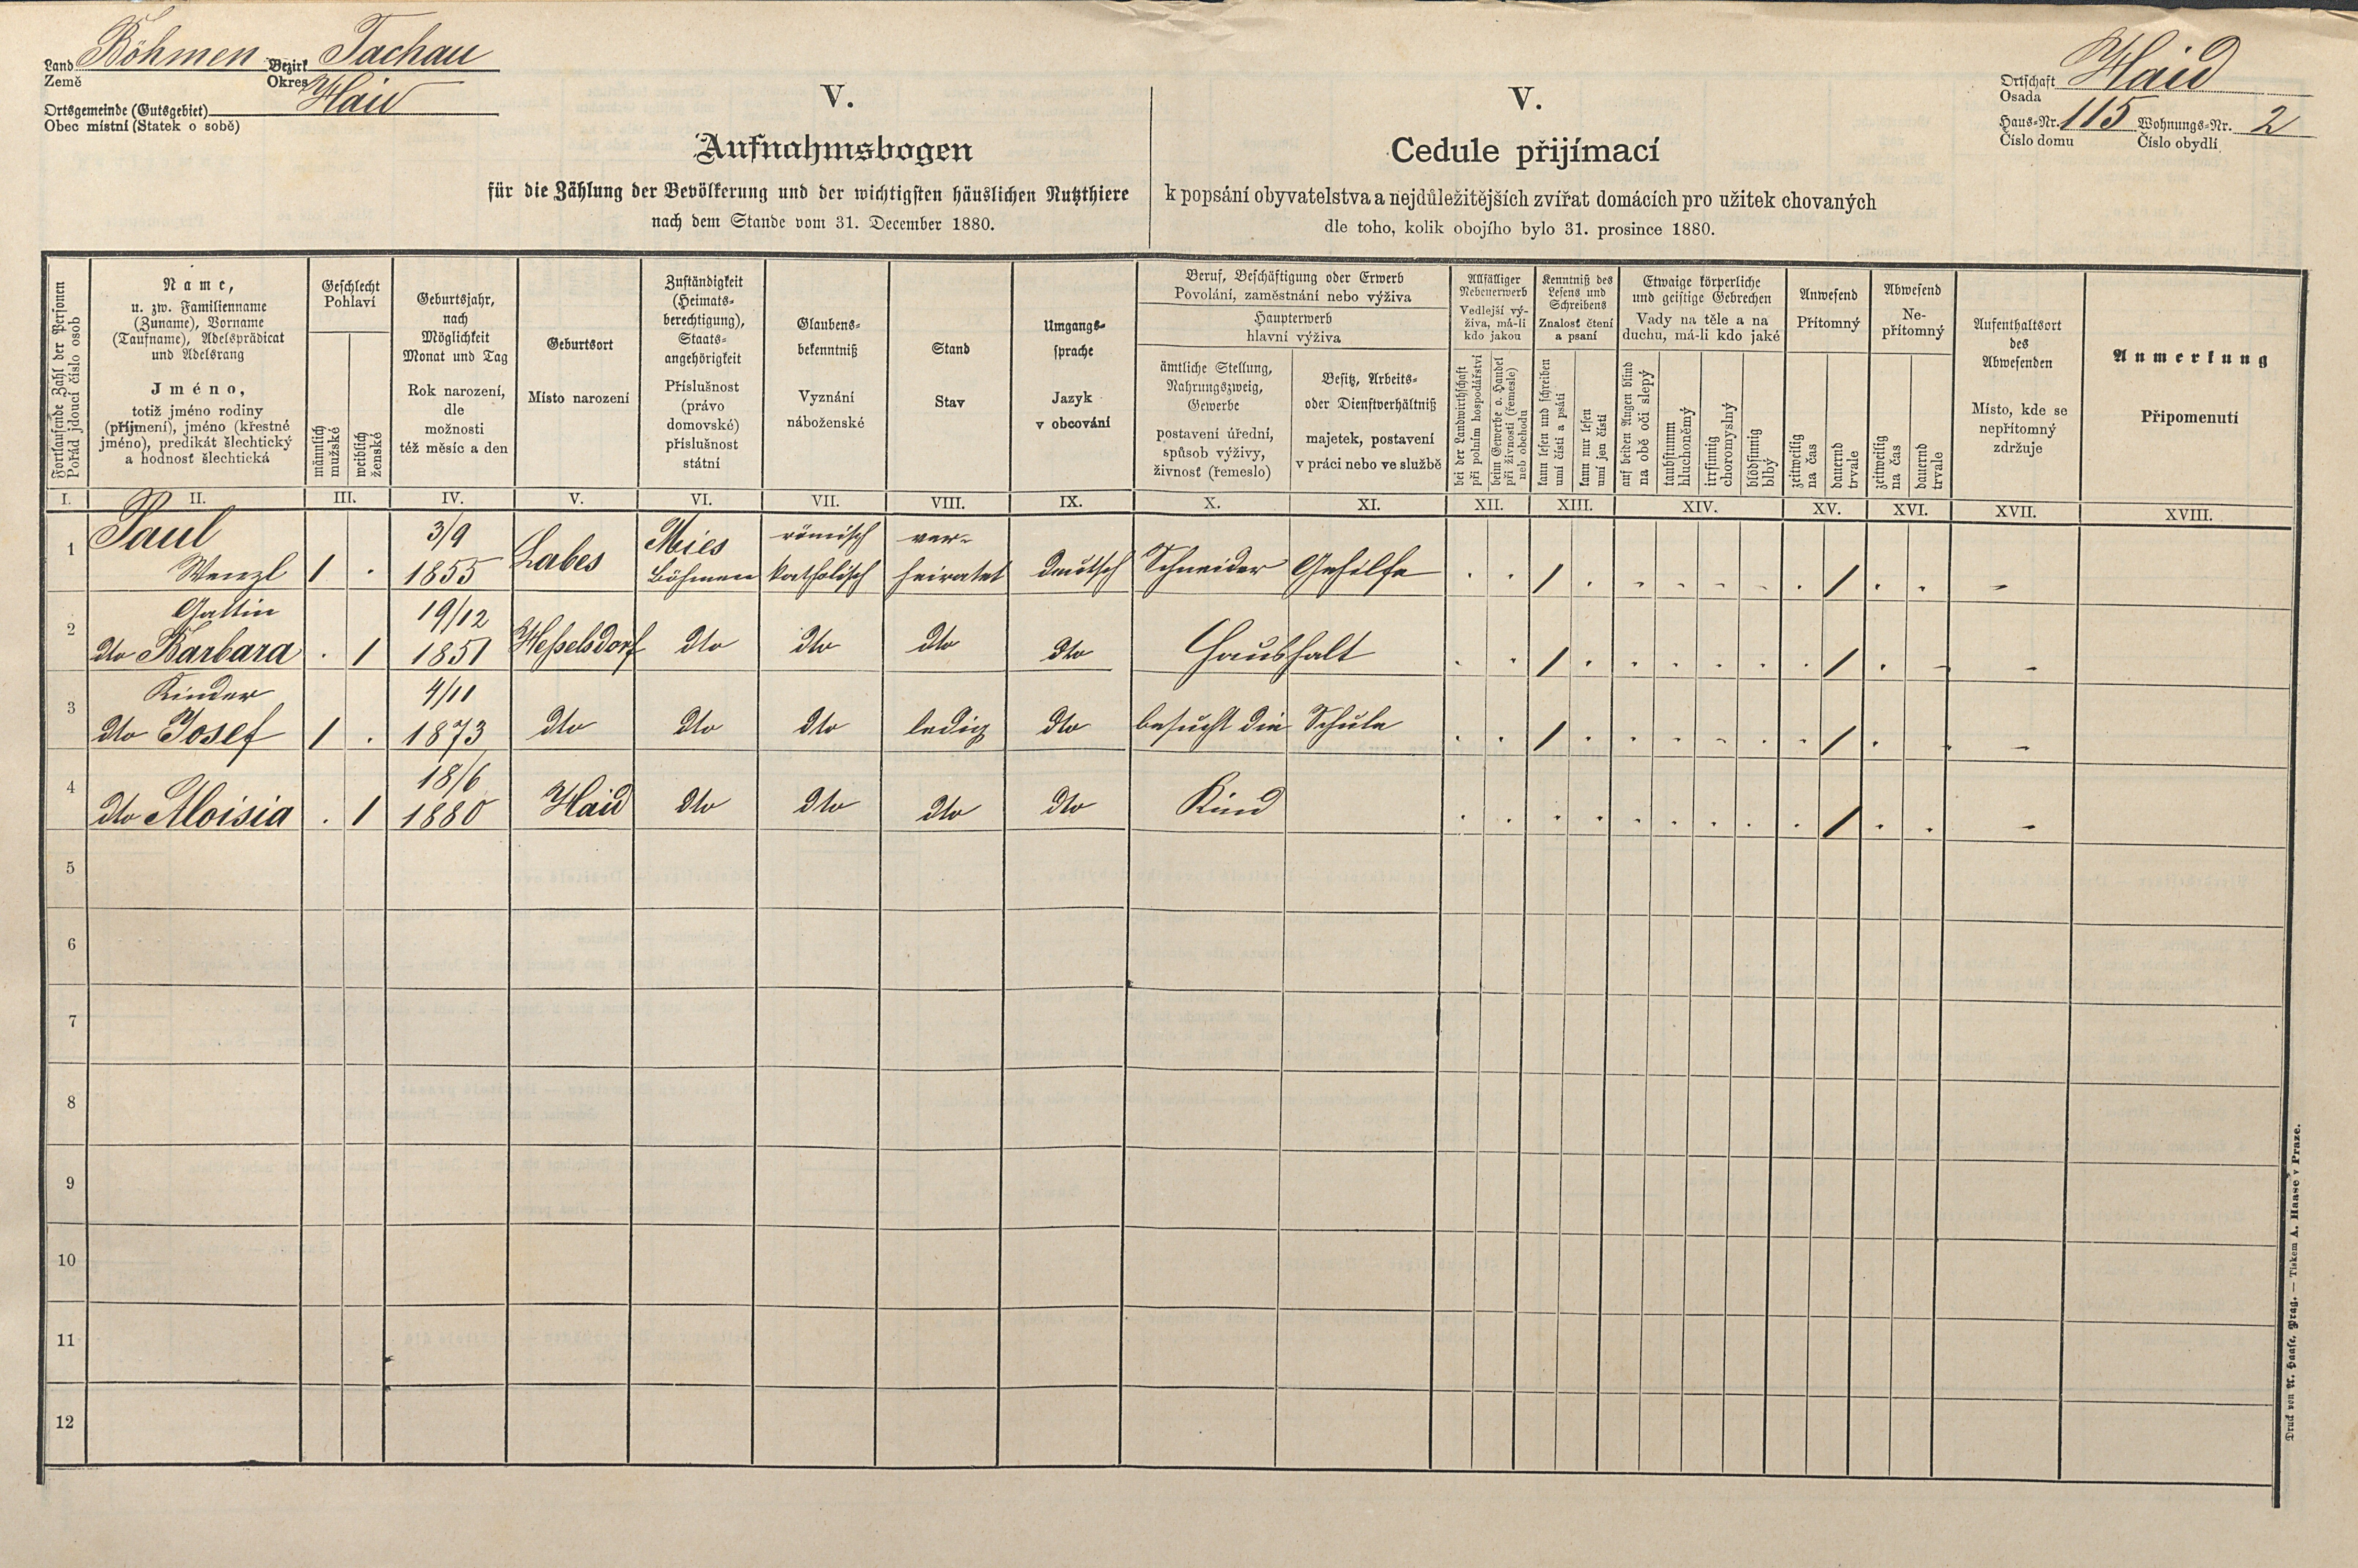 Land Böhmen Bezirk Tachau
Země Okres
Ortsgemeinde (Gutsgebiet) Haid
Obec místní (Statek o sobě)
V.
Aufnahmsbogen
für die Zählung der Bevölkerung und der wichtigsten häuslichen Nutzthiere
nach dem Stande vom 31. December 1880.
V.
Cedule přijímací
k popsání obyvatelstva a nejdůležitějších zvířat domácích pro užitek chovaných
dle toho, kolik obojího bylo 31. prosince 1880.
Ortschaft Haid
Osada
Haus-Nr. 115 Wohnungs-Nr. 2
Číslo domu Číslo obydlí
Fortlaufende Zahl der Personen
Pořád jdoucí číslo osob
Name,
u. zw. Familienname
(Zuname), Vorname
(Taufname), Adelsprädicat
und Adelsrang
Jméno,
totiž jméno rodiny
(příjmení), jméno (křestné
jméno), predikát šlechtický
a hodnosť šlechtická
Geschlecht
Pohlaví
männlich
mužské
weiblich
ženské
Geburtsjahr,
nach
Möglichkeit
Monat und Tag
Rok narození,
dle
možnosti
též měsíc a den
Geburtsort
Místo narození
Zuständigkeit
(Heimats-
berechtigung),
Staats-
angehörigkeit
Příslušnost
(právo
domovské)
příslušnost
státní
Glaubens-
bekenntniß
Vyznání
náboženské
Stand
Stav
Umgangs-
sprache
Jazyk
v obcování
Beruf, Beschäftigung oder Erwerb
Povolání, zaměstnání nebo výživa
Haupterwerb
hlavní výživa
ämtliche Stellung,
Nahrungszweig,
Gewerbe
postavení úřední,
spůsob výživy,
živnosť (řemeslo)
Besitz, Arbeits-
oder Dienstverhältniß
majetek, postavení
v práci nebo ve službě
Allfälliger
Nebenerwerb
Vedlejší vý-
živa, má-li
kdo jakou
bei der Landwirthschaft
při polním hospodářství
beim Gewerbe o. Handel
při živnosti (řemesle)
neb obchodu
Kenntniß des
Lesens und
Schreibens
Znalosť čtení
a psaní
kann lesen und schreiben
umí čísti a psáti
kann nur lesen
umí jen čísti
Etwaige körperliche
und geistige Gebrechen
Vady na těle a na
duchu, má-li kdo jaké
auf beiden Augen blind
na obě oči slepý
taubstumm
hluchoněmý
irrsinnig
choromyslný
blödsinnig
blbý
Anwesend
Přítomný
zeitweilig
na čas
dauernd
trvale
Abwesend
Ne-
přítomný
zeitweilig
na čas
dauernd
trvale
Aufenthaltsort
des
Abwesenden
Místo, kde se
nepřítomný
zdržuje
Anmerkung
Připomenutí
I. II. III. IV. V. VI. VII. VIII. IX. X. XI. XII. XIII. XIV. XV. XVI. XVII. XVIII.
Paul 3/9 Mies römisch ver-
1 Wenzl 1 . 1855 Labes Böhmen katholisch heiratet deutsch Schneider Gehilfe . . / . . . . . . / . . -
Gattin 19/12
2 dto Barbara . 1 1851 Weßelsdorf dto dto dto dto Haushalt . . / . . . . . . / . - -
Kinder 4/11
3 dto Josef 1 . 1873 dto dto dto ledig dto besucht die Schule . . / . . . . . . / . . -
18/6
4 dto Aloisia . 1 1880 Haid dto dto dto dto Kind . . . . . . . . . / . . -
5
6
7
8
9
10
11
12
Druck von A. Haase, Prag. — Tiskem A. Haase v Praze.